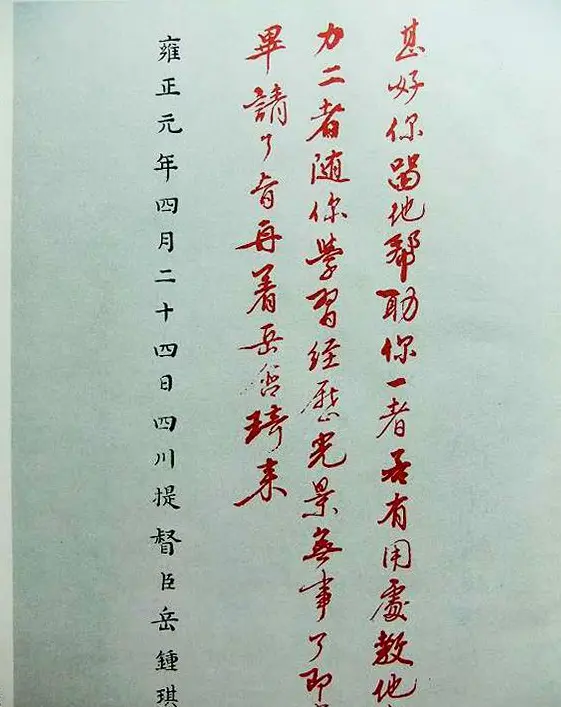 甚好你留他帮助你一者若有用處教他
力二者随你學習經歷光景無事了即
畢請了旨再着岳含琦来
雍正元年四月二十四日四川提督臣岳鍾琪